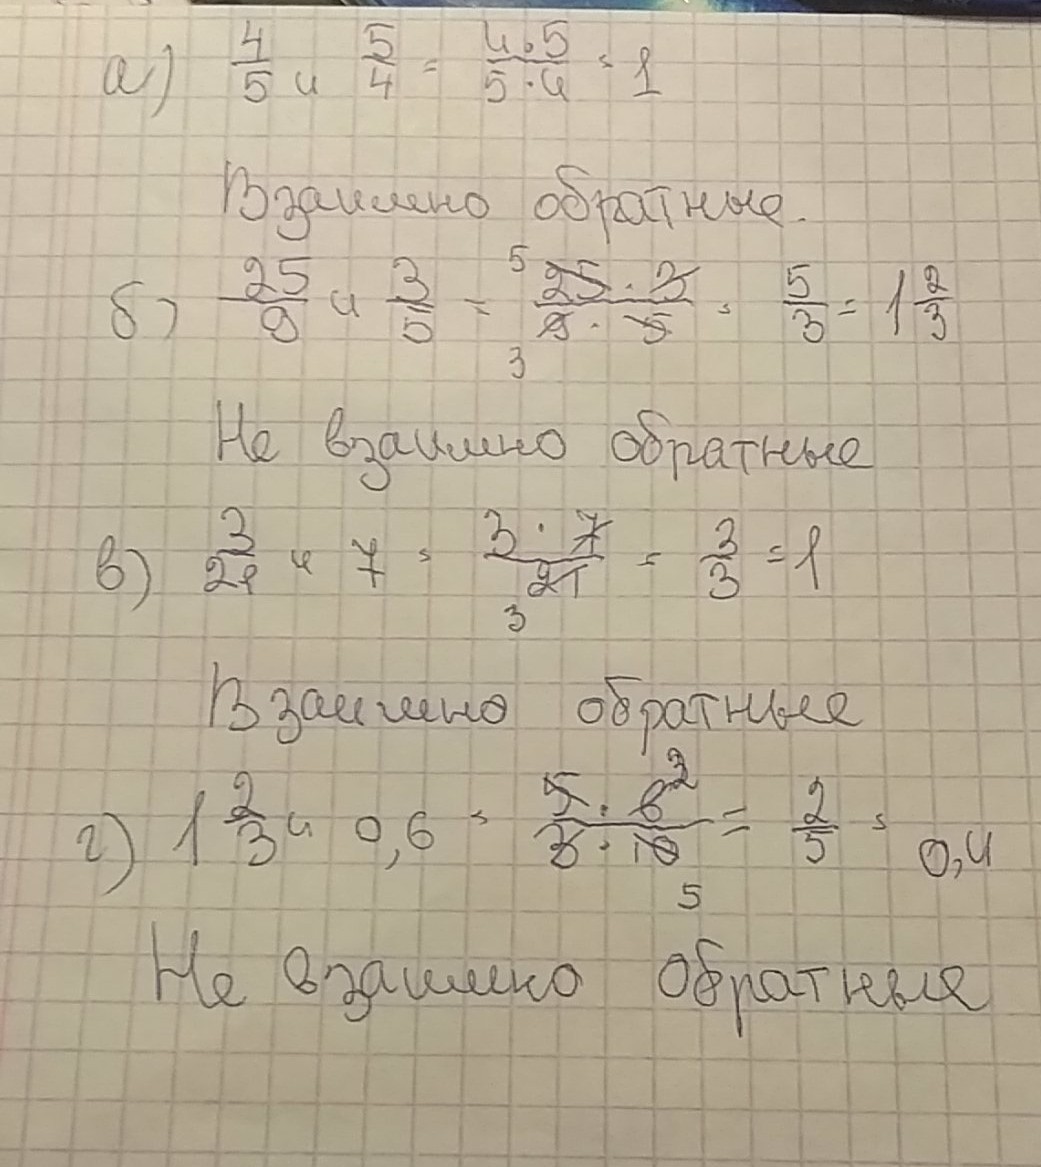 а) 4/5 и 5/4 = 4·5/5·4 = 1
Взаимно обратные.
б) 25/9 и 3/5 = 5 25·3/9·5 3 = 5/3 = 1 2/3
Не взаимно обратные
в) 3/21 и 7 = 3·7/21 3 = 3/3 = 1
Взаимно обратные
г) 1 2/3 и 0,6 = 5·6 2/3·10 5 = 2/5 = 0,4
Не взаимно обратные